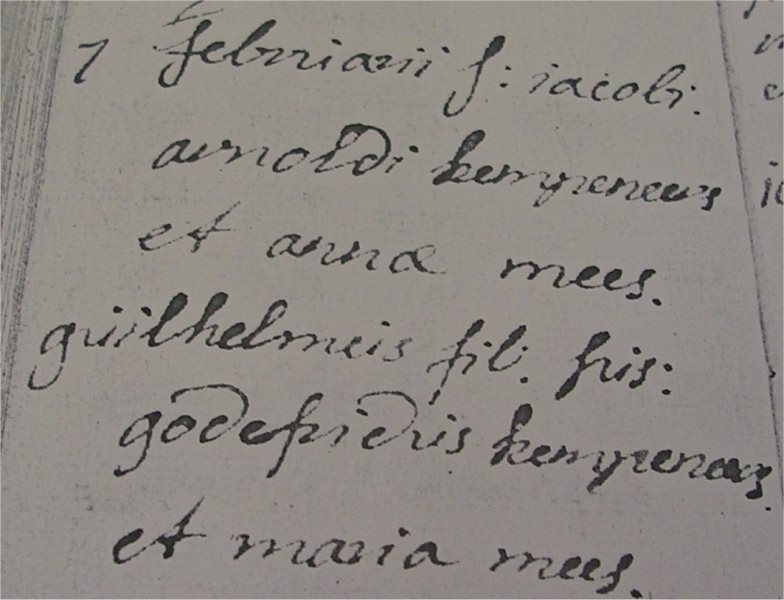 7 februarii f: iacobi.
arnoldi kempeneers
et annæ mees.
guilhelmus fil. sus:
godefridus kempeneers.
et maria mees.